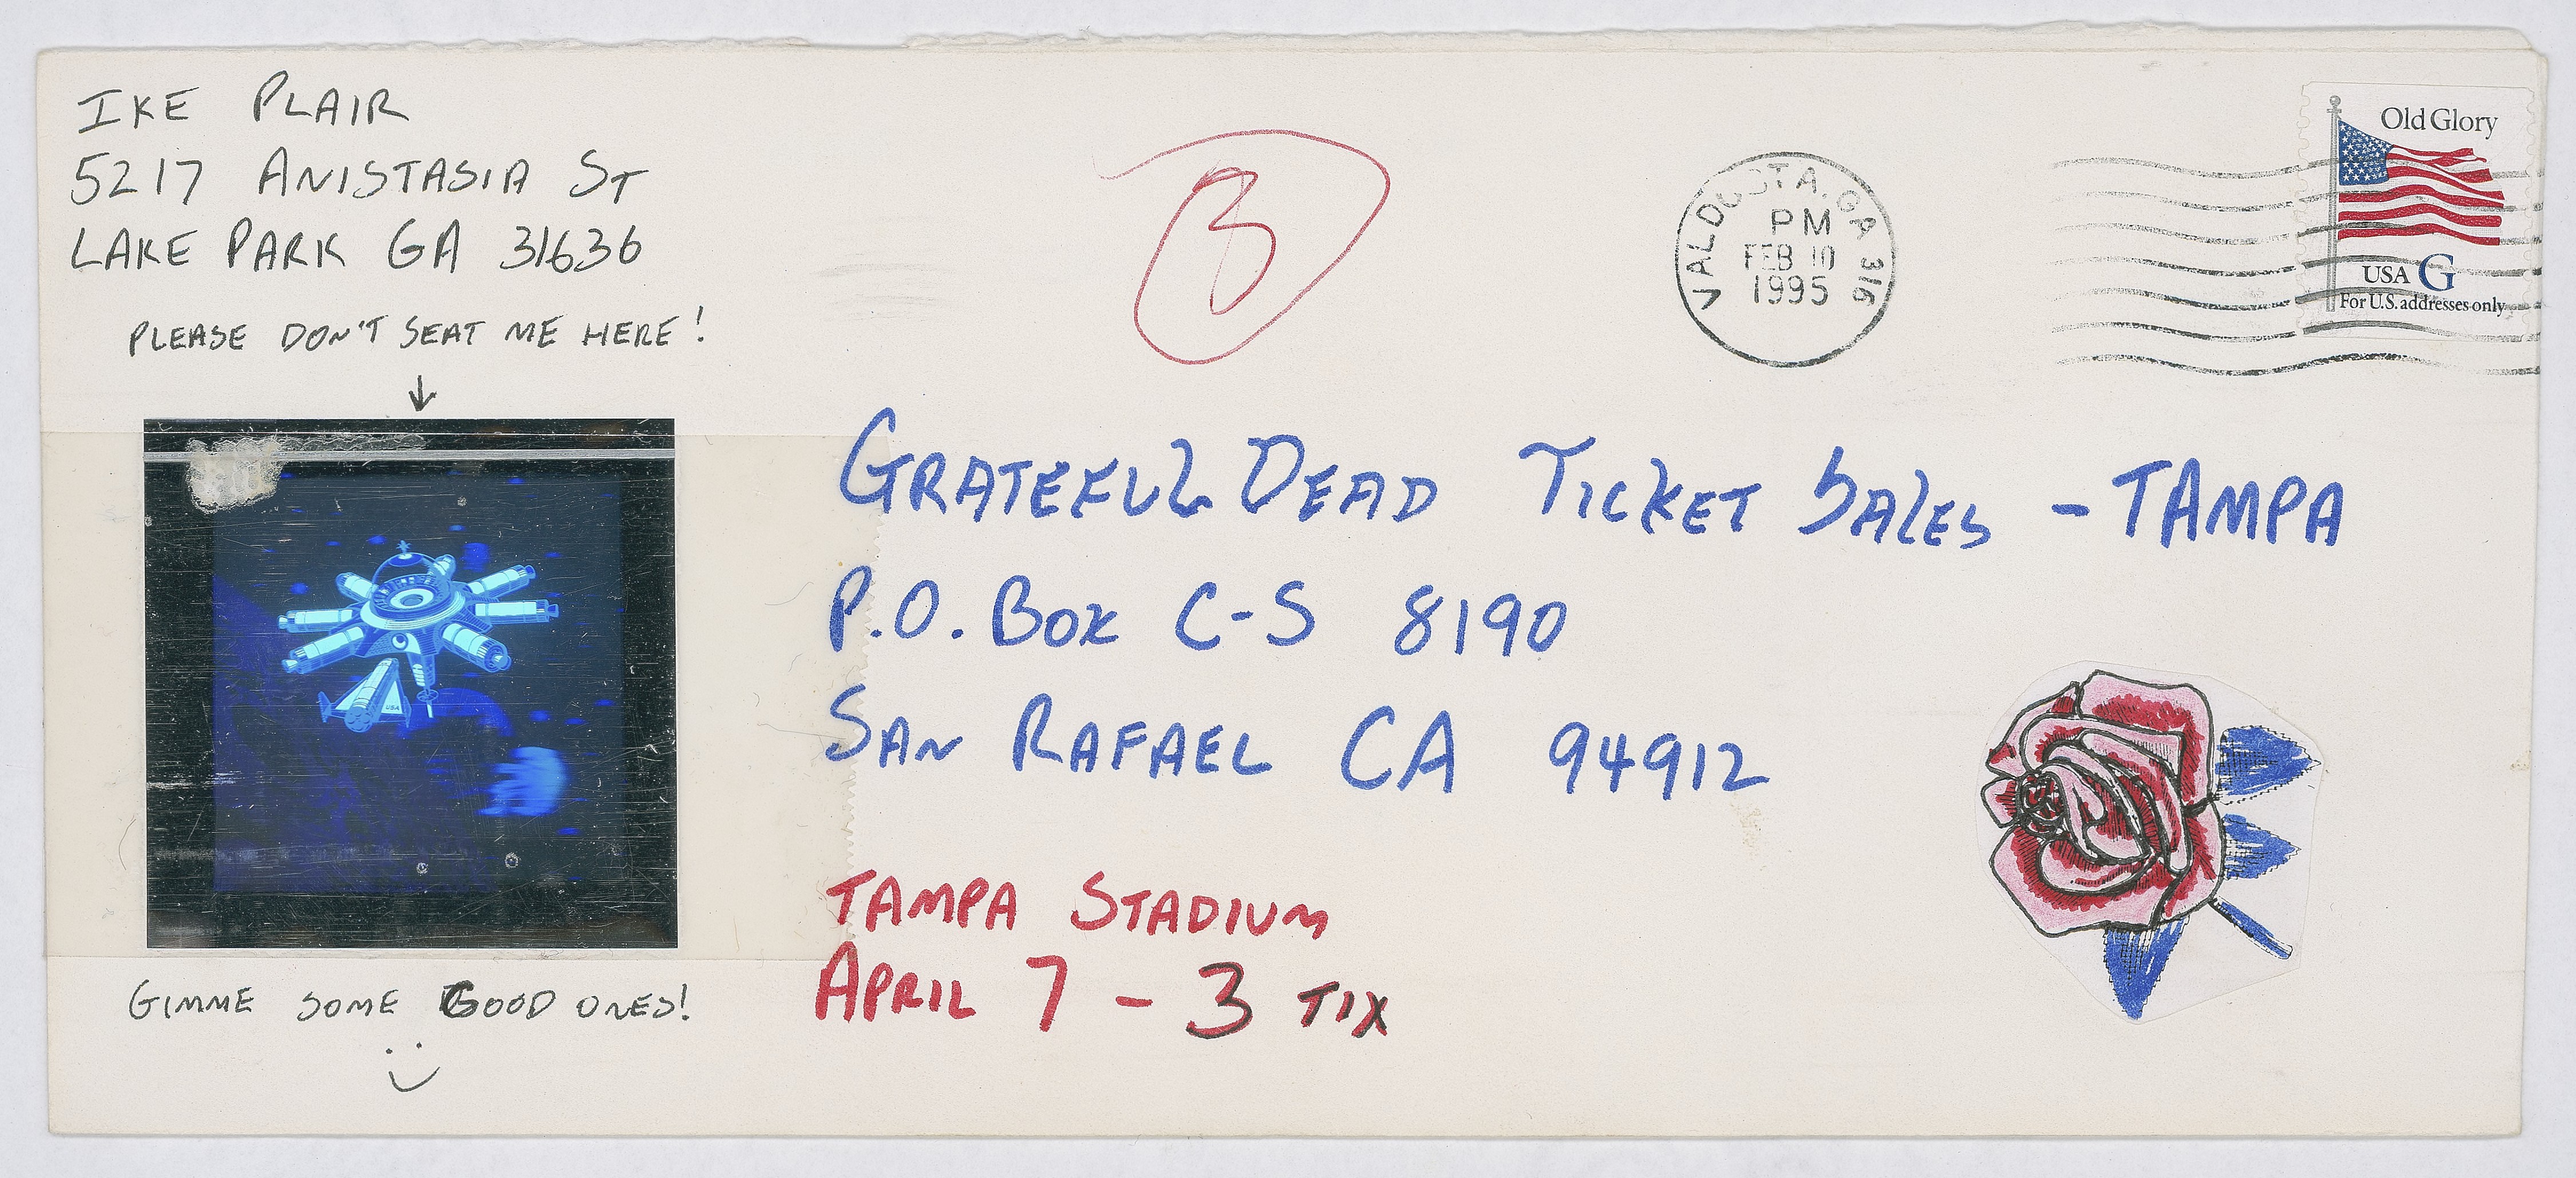 IKE PLAIR
5217 ANISTASIA ST
LAKE PARK GA 31636
PLEASE DON'T SEAT ME HERE!
USA
GIMME SOME GOOD ONES!
3
VALDOSTA, GA 316
PM
FEB 10
1995
Old Glory
USA G
For U.S. addresses only
GRATEFUL DEAD TICKET SALES - TAMPA
P.O. BOX C-S 8190
SAN RAFAEL CA 94912
TAMPA STADIUM
APRIL 7 - 3 TIX